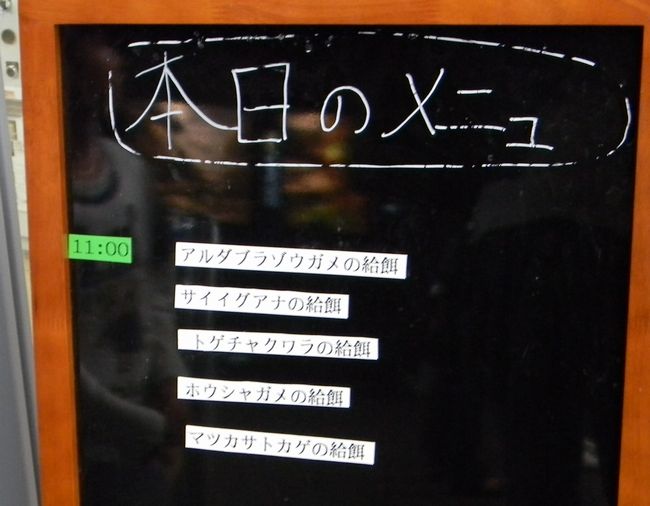 本日のメニュ
11:00
アルダブラゾウガメの給餌
サイイグアナの給餌
トゲチャクワラの給餌
ホウシャガメの給餌
マツカサトカゲの給餌